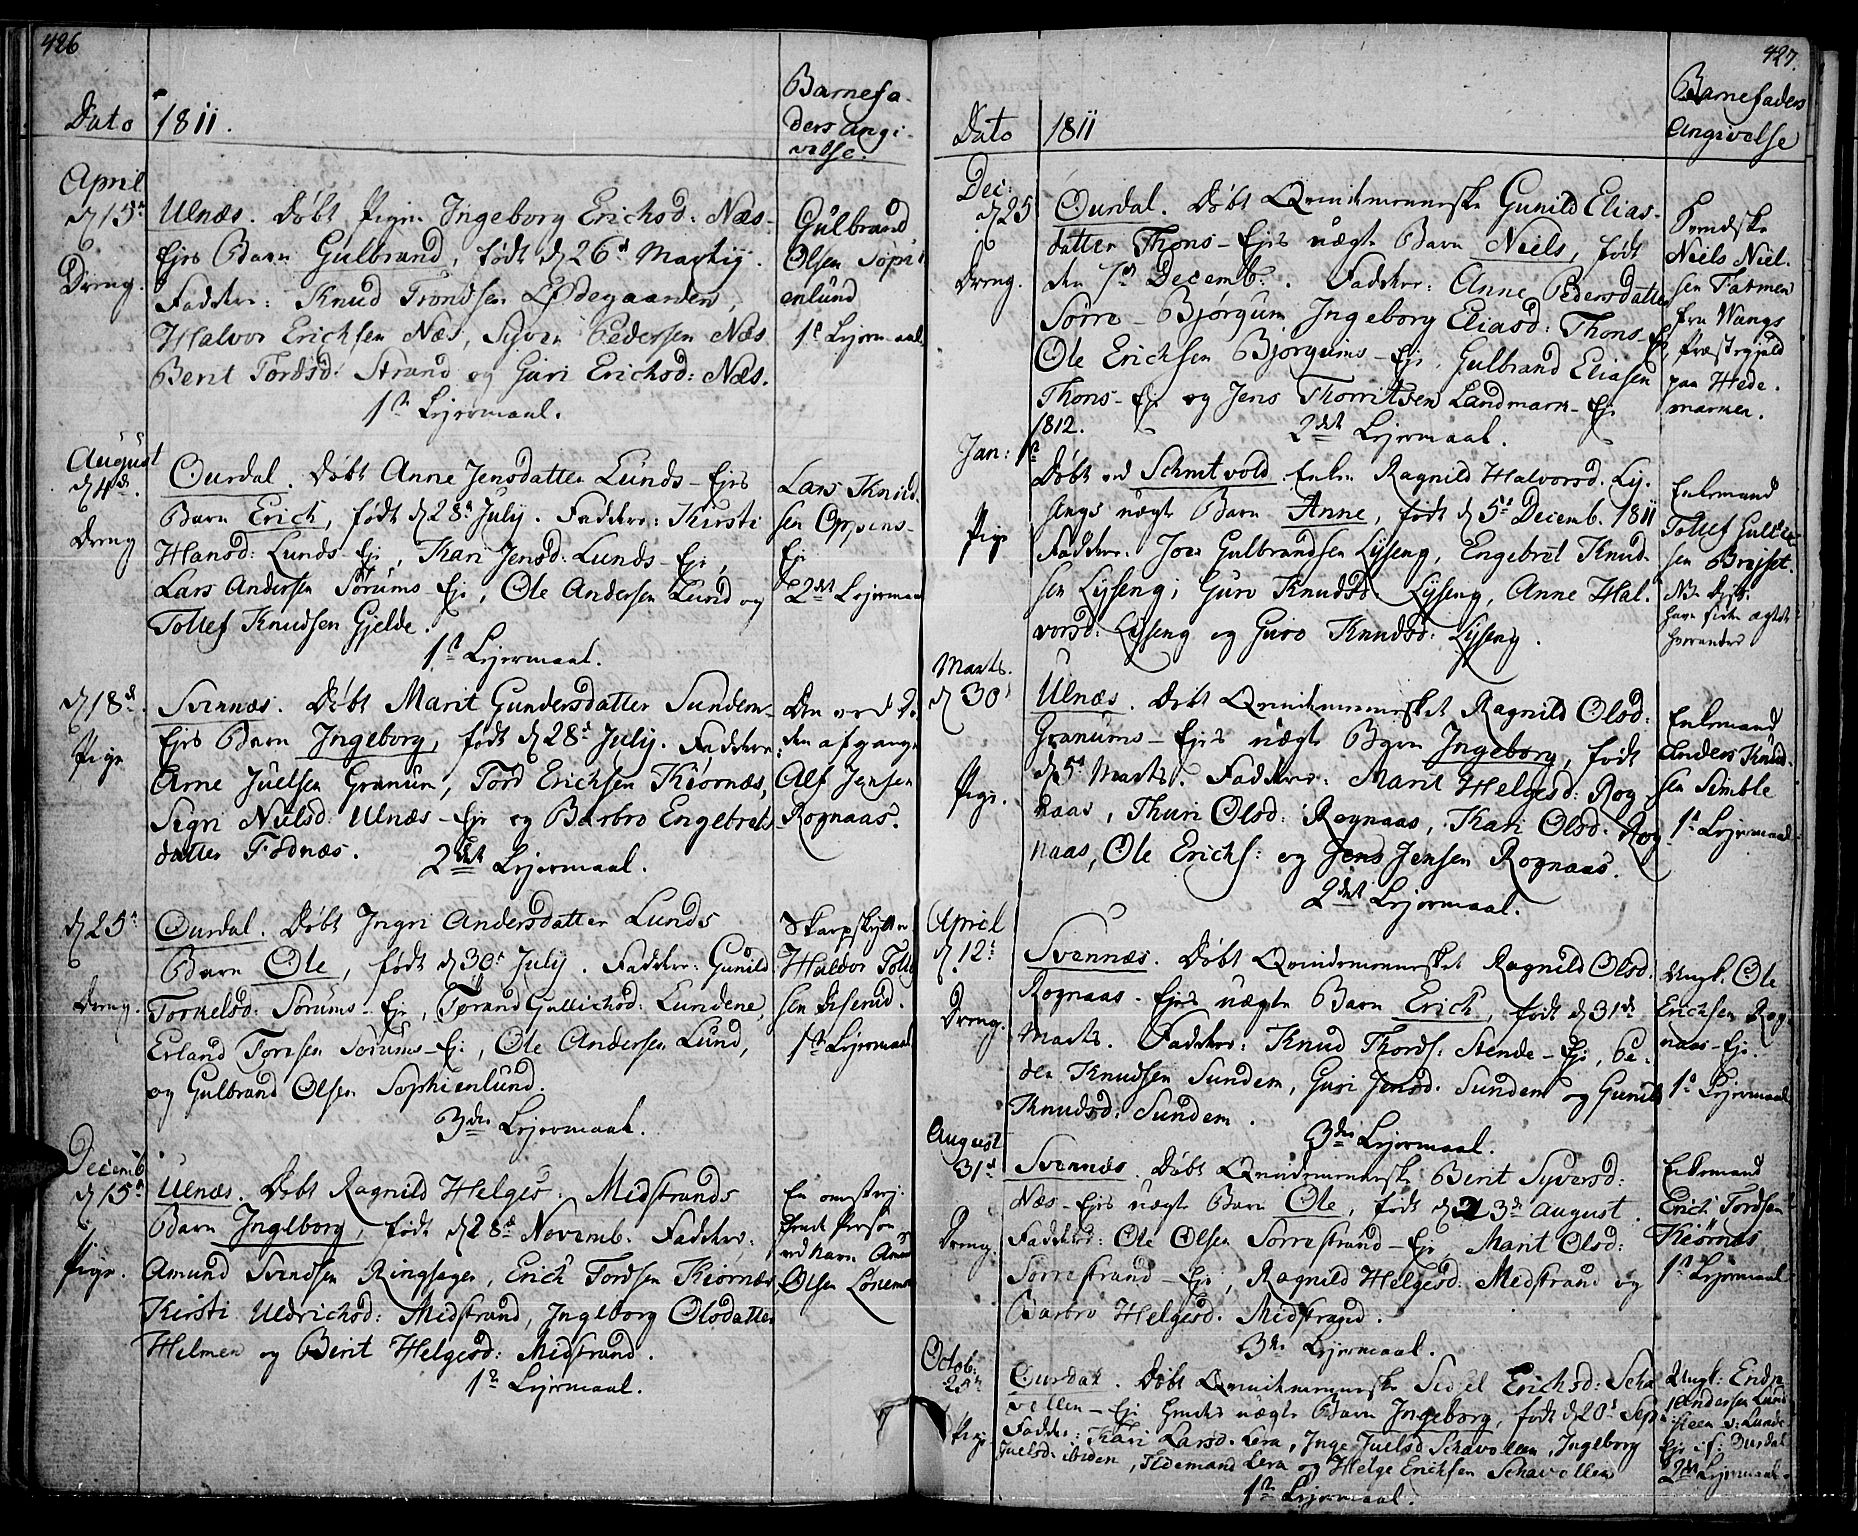 426
Dato 1811.
Barnefa-
ders angi-
velse.
April
d 15de
Dreng.
Ulnæs. Døbt Pigen Ingeborg Erichsd: Næs-
Ejes Barn Gulbrand, født d 26d Martij.
Faddere: Knud Trondsen Ødegaarden,
Halvor Erichsen Næs, Syver Pedersen Næs
Berit Tordsd: Strand og Guri Erichsd: Næs.
1ste Lejermaal.
Gulbrand
Olsen Sophi
enlund
1ste Lejermaal
August
d 4de.
Dreng
Ourdal. Døbt Anne Jensdatter Lunds-Ejes
Barn Erich, født d 28d July. Faddere: Kirsti
Hansd: Lunds-Eje, Kari Jensd: Lunds-Eje,
Lars Andersen Sørums Eje, Ole Andersen Lund og
Tollef Knudsen Gjelde.
1ste Lejermaal.
Lars Knud-
sen Oppens-
Eje
2det Lejermaal
d 18de.
Pige
Svennæs. Døbt Marit Gundersdatter Sundem-
Ejes Barn Ingeborg, født d 28d July. Faddere:
Arne Juelsen Granum, Tord Erichsen Kiørnæs,
Sigri Nielsd: Ulnæs-Eje og Barbro Engebrets
datter Fodnæs.
2det Lejermaal.
Den ved Dø-
den afgangne
Alf Jensen
Rognaas.
d 25de
Dreng.
Ourdal. Døbt Ingri Andersdatter Lunds
Barn Ole, født d 30d July. Faddere: Gunild
Torkelsd: Sørums-Eje, Tørand Gullichsd: Lundene,
Erland Toresen Sørums-Eje, Ole Andersen Lund,
og Gulbrand Olsen Sophienlund.
3die Lejermaal.
Skarpskytter
Haldor Tolle
sen Diserud.
1ste Lejermaal
Decemb.
d 15de
Pige.
Ulnæs. Døbt Ragnild Helges: Midstrands
Barn Ingeborg, født d 28de Novemb. Faddere:
Amund Svendsen Ringsager, Erich Tordsen Kiørnæs,
Kirsti Uldrichsd: Midstrand, Ingeborg Olsdatter
Helmen og Berit Helgesd: Midstrand.
1ste Lejermaal.
En omstrej-
fende Person
ved Navn
Olsen
427.
Dato 1811
Barnefaders
Angivelse
Dec:
d 25
Dreng.
Ourdal. Døbt Qvindemenneske Gunild Elias-
datter Thons-Ejes uægte Barn Niels, født
den 7de Decemb:. Faddere: Anne Pedersdatter
Sørre-Bjørgum Ingeborg Eliasd: Thons-Eje
Ole Erichsen Bjorgums-Eje, Gulbrand Eliasen
Thons-Eje og Jens Thorritsen Landmark-Eje
2det Lejermaal.
Svendske
Niels Niel-
sen Farmen
fra Wangs
Præstegjeld
paa Hede-
marken.
1812.
Jan: 1ste
Pige
Døbt ved Schutvold Enke Ragnild Halvorsd. Ly-
sengs uægte Barn Anne, født d 5de Decemb. 1811
Faddere: Joen Gulbrandsen Lyseng, Engebret Knud-
sen Lyseng, Guro Knudsd: Lyseng, Anne Hal-
vorsd: Lyseng og Guro Knudsd: Lyseng.
Enkemand
Tollef
sen
NB. Disse
have siden ægtet
hverandre
Marts.
d 30
Pige.
Ulnæs. Døbt Qvindemennesket Ragnild Olsd:
Granums-Ejes uægte Barn Ingeborg, født
d 5d Marts. Faddere: Marit Helgesd: Rog-
naas, Thuri Olsd: Rognaas, Kari Olsd: Rog-
naas, Ole Erichs: og Jens Jensen Rognaas.
2det Lejermaal.
Enkemand
Anders Knud-
sen Semble
1ste Lejermaal
April
d 12te
Dreng.
Svennæs. Døbt Qvindemennesket Ragnild Olsd:
Rognaas-Ejes uægte Barn Erich, født d 31de
Marts. Faddere: Knud Thords: Stende-Eje, Pe-
der Knudsen Sundem, Guri Jensd: Sundem og Gunild
Knudsd: Sundem.
3die Lejermaal.
Ungk. Ole
Erichsen Rog-
naas-Eje.
1ste Lejermaal
August
31te
Dreng.
Svennæs. Døbt Qvindemenneske Berit Syversd:
Næs-Ejes uægte Barn Ole, født d 23de August.
Faddere: Ole Olsen Sørrestrand-Eje, Marit Olsd:
Sørrestrand-Eje, Ragnild Helgesd: Midstrand og
Barbro Helgesd. Midstrand.
3die Lejermaal.
Enkemand
Erich Tordsen
Kiørnæs
1ste Lejermaal
Octob:
25de
Pige
Ourdal. Døbt Qvindemenneske Sidsel Erichsd: Scha-
vellen-Eje uægte Barn Ingeborg, født d 20d Sep:
Fadde: Kari Larsd. Lera, Inge Juelsd Schavollen, Ingeborg
Juelsd: ibiden, Tidemand Lera og Helge Erichsen Schavollen
1ste Lejermaal.
Ungk: Endre
Andersen Lund
Lunde
Eje Ourdal
2det Lejermaal.